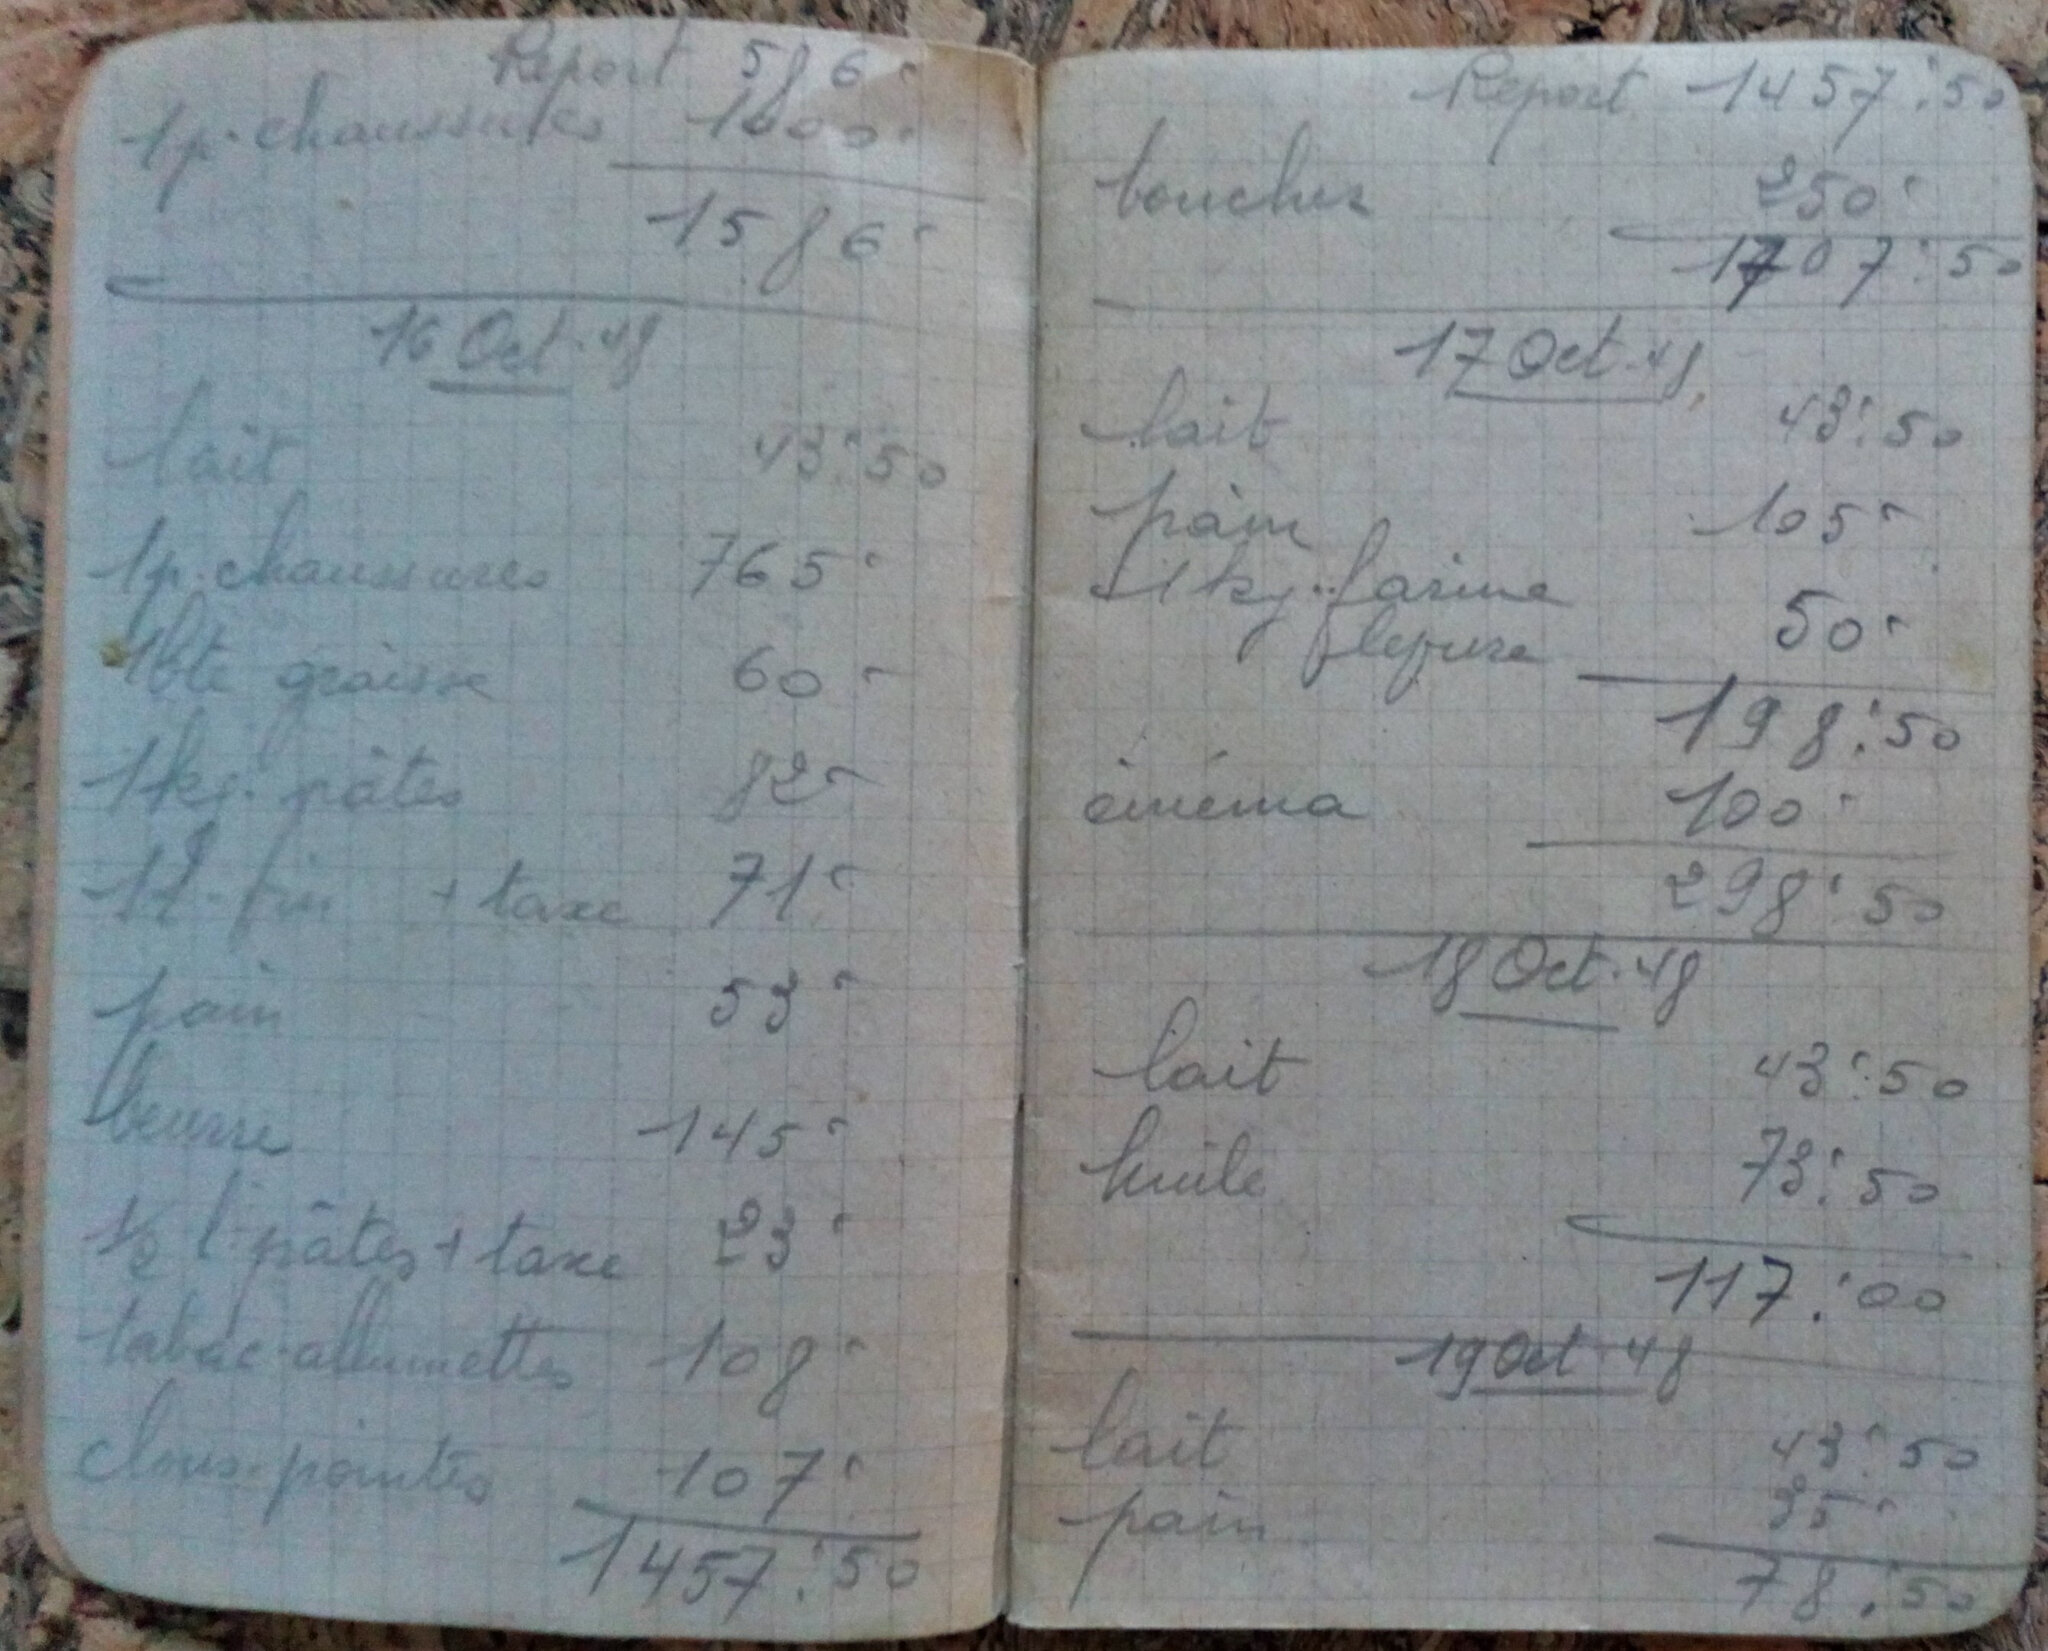 Report 586 -
1 p. chaussures 1000 -
1586 -
16 Oct. 48
lait 43:50
1 p. chaussures 765 -
1 bte graisse 60 -
1 kg. pâtes 82 -
1 l. vin + taxe 71 -
pain 53 -
beurre 145 -
1/2 l. pâtes + taxe 23 -
tabac-allumettes 108 -
clous-pointes 107 -
1457:50
Report 1457:50
250 -
1707:50
17 Oct. 48
lait 43:50
pain 105 -
1 kg. farine
levure 50 -
198:50
cinéma 100 -
298:50
18 Oct. 48
lait 43:50
huile 73:50
117:00
19 Oct. 48
lait 43:50
pain 35 -
78:50